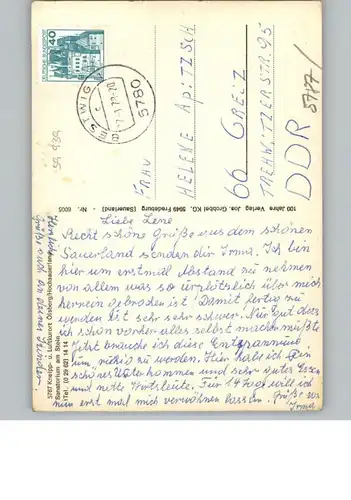 40
DEUTSCHE BUNDESPOST
BESTWIG
5780
FRAU
HELENE APITZSCH
66 GREIZ
TREHWITZERSTR. 95
DDR
100 Jahre Verlag Jos. Grobbel KG, 5949 Fredeburg (Sauerland) Nr. 6005
Liebe Lene
Recht schöne Grüße aus dem schönen
Sauerland sendet dir Irma. Ich bin
hier um erstmal Abstand zu nehmen
von allem was so urplötzlich über mich
herein gebrochen ist. Damit fertig zu
werden ist sehr sehr schwer. Nur gut daß
ich schon vorher alles selbst machen mußte
Jetzt brauche ich diese Entspannung
um ruhig zu werden. Hier habe ich ein
schönes Unterkommen und sehr gutes Essen
und nette Wirtsleute. Für 14 Tage will ich
nun erst mal mich verwöhnen lassen. Grüße von
Irma
5787 Kneipp- u. Luftkurort Olsberg/Hochsauerland
Sanatorium am Stein
(Tel. (0 29 62) 14 14